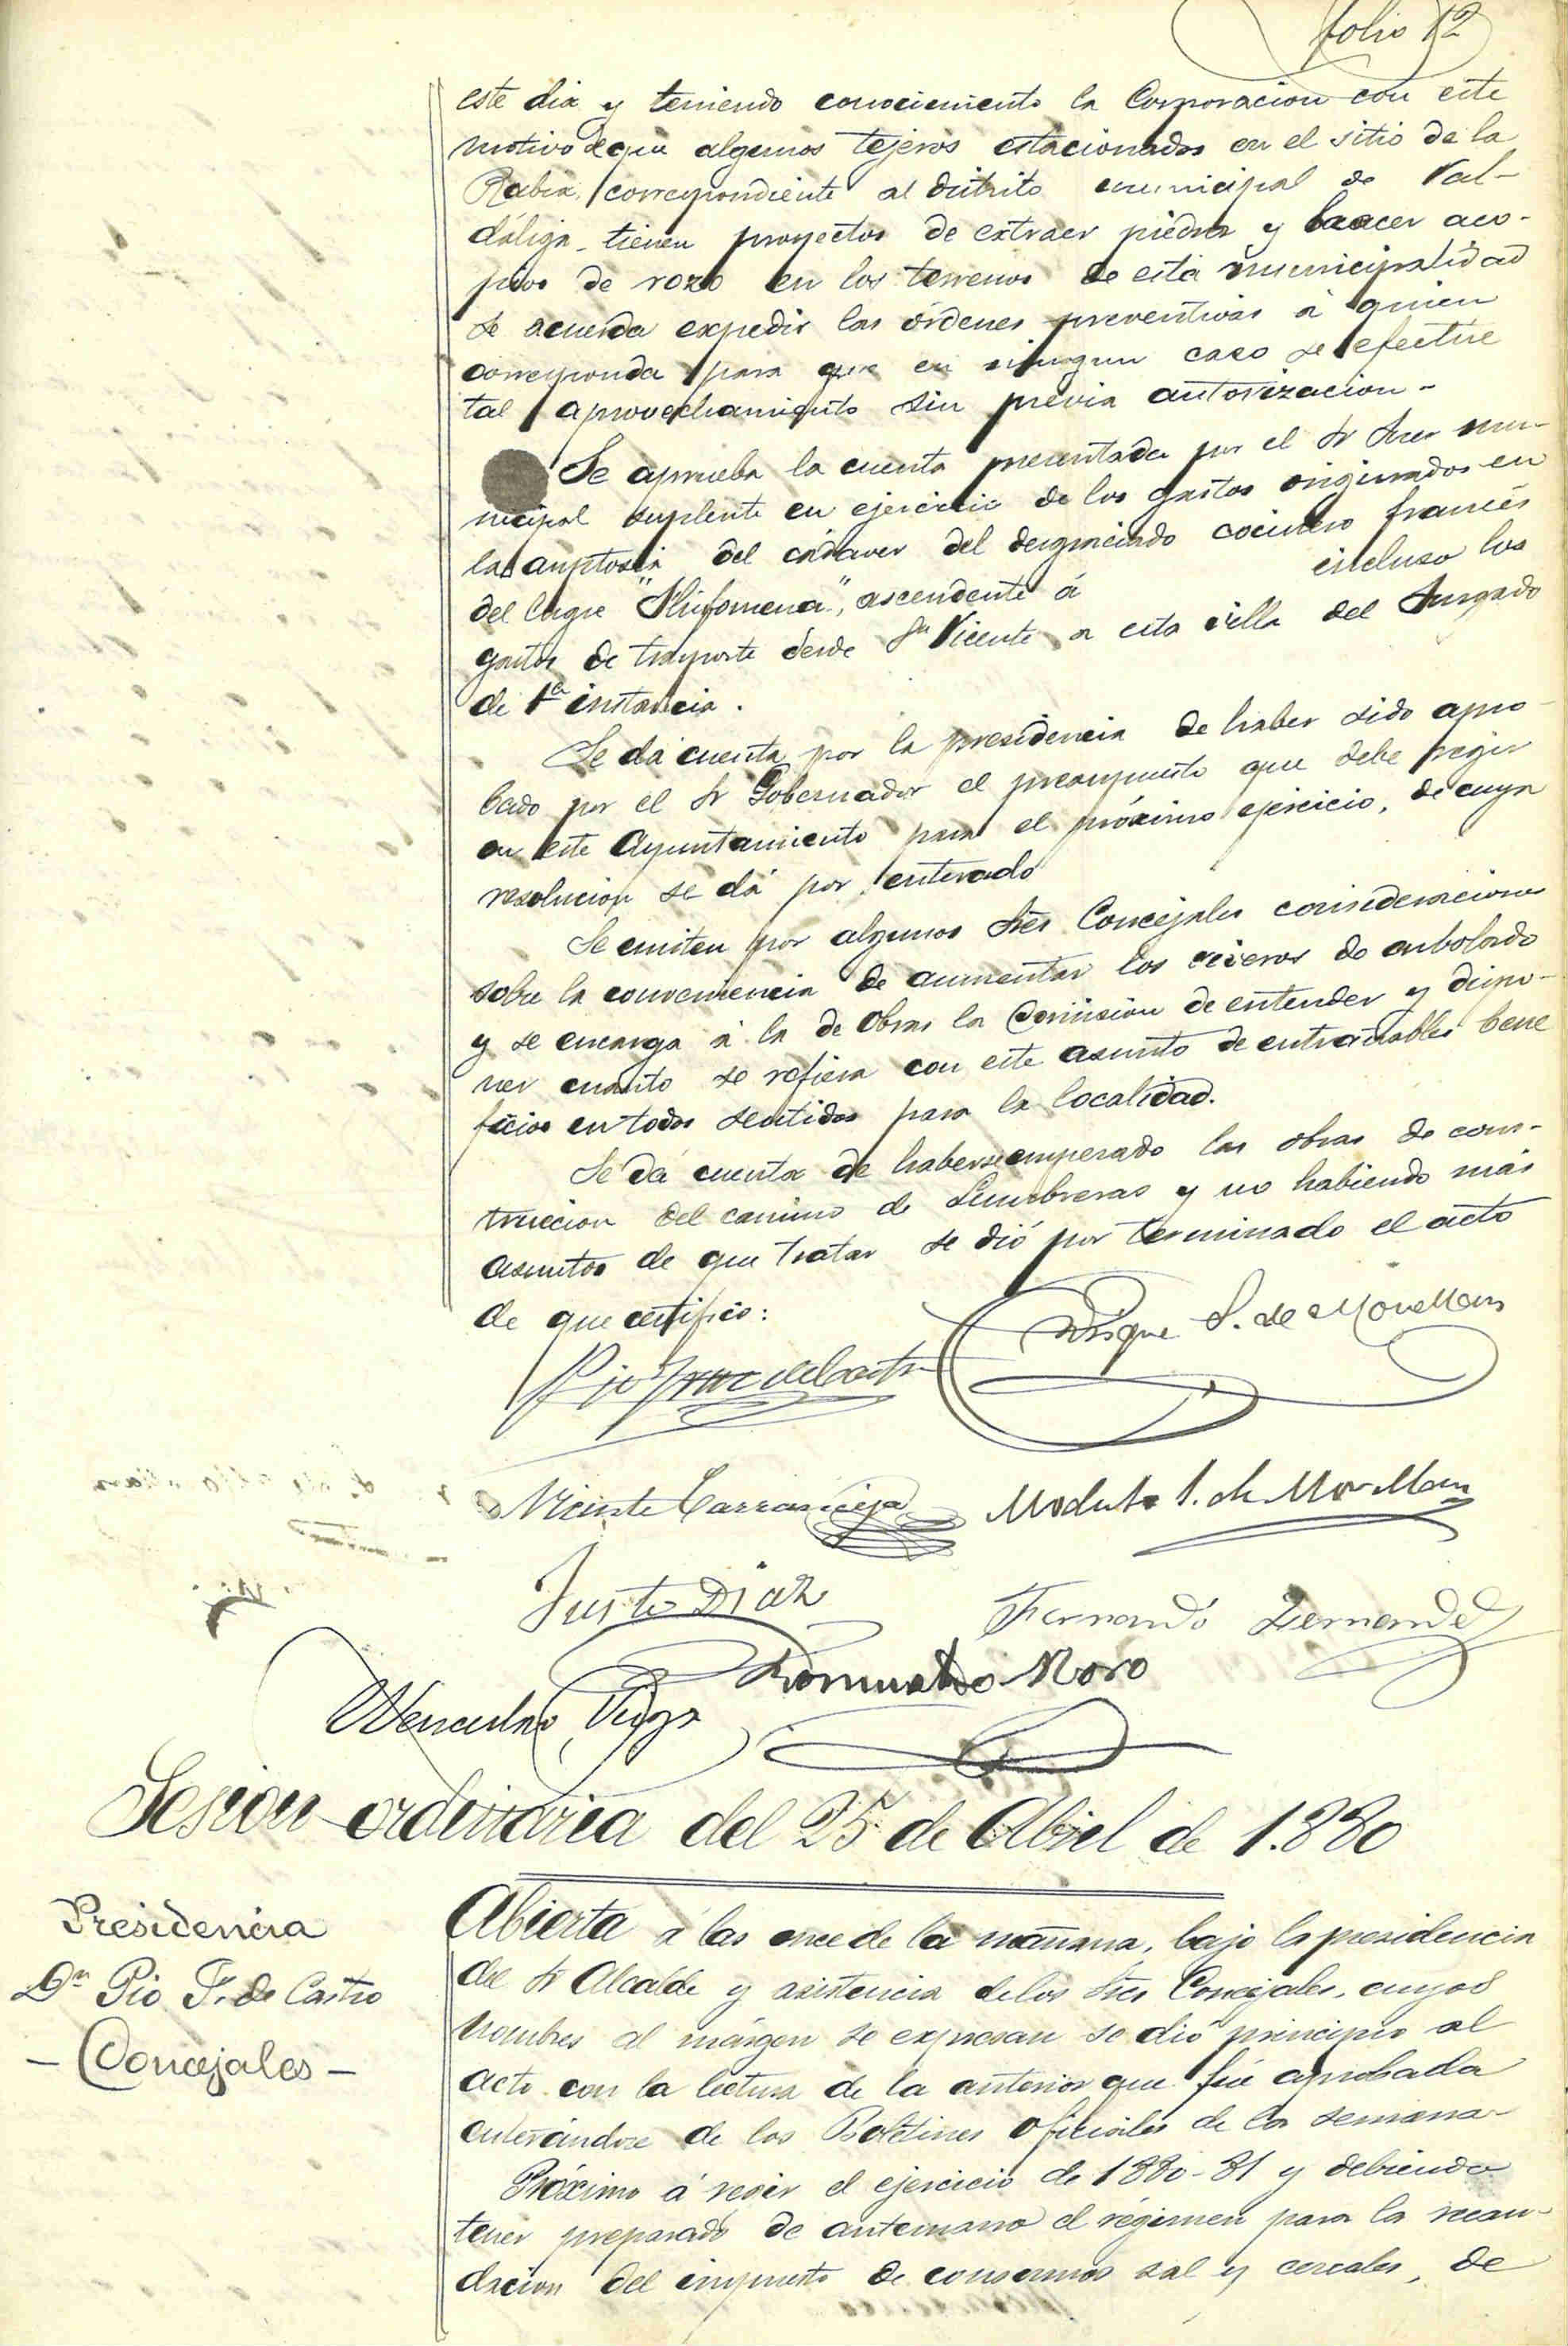 folio 12
este dia y teniendo conocimiento la Corporacion con este
motivo de que algunos tejeros estacionados en el sitio de la
Rabia, correspondiente al distrito municipal de Val-
dáliga tienen proyectos de extraer piedra y hacer aco-
pios de rozo en los terrenos de esta municipalidad
se acuerda expedir las órdenes preventivas á quien
corresponda para que en ningun caso se efectúe
tal aprovechamiento sin prévia autorizacion-
Se aprueba la cuenta presentada por el Sr Juez mu-
nicipal suplente en ejercicio de los gastos originados en
la auptosia del cadaver del desgraciado cocinero francés
del lugre ascendente á incluso los
gastos de trasporte desde Sn Vicente a esta villa del Juzgado
de 1ª instancia.
Se dá cuenta por la presidencia de haber sido apro-
bado por el Sr Gobernador el presupuesto que debe regir
en este Ayuntamiento para el próximo ejercicio, de cuya
resolucion se dá por enterado
Se emiten por algunos Sres Concejales consideraciones
sobre la conveniencia de aumentar los viveros de arbolado
y se encarga á la de Obras la Comision de entender y dispo-
ner cuanto se refiera con este asunto de entrañables bene
ficios en todos sentidos para la localidad.
Se dá cuenta de haberse empezado las obras de cons-
truccion del camino de Lumbreras y no habiendo más
asuntos de que tratar se dió por terminado el acto
de que certifico:
Pio F. de Castro
Roque S. de Movellan
Vicente Carranceja
Modesto S. de Movellan
Justo Diaz
Fernando Fernandez
Romualdo Moro
Wenceslao Vega
Sesion ordinaria del 25 de Abril de 1.880
Presidencia
Dn Pio F. de Castro
- Concejales -
Abierta á las once de la mañana, bajo la presidencia
del Sr Alcalde y asistencia de los Sres Concejales, cuyos
nombres al márgen se expresan se dió principio al
acto con la lectura de la anterior que fué aprobada
enterándose de los Boletines oficiales de la semana-
Próximo á regir el ejercicio de 1880-81 y debiendo
tener preparado de antemano el régimen para la recau-
dacion del impuesto de consumos sal y cereales, de